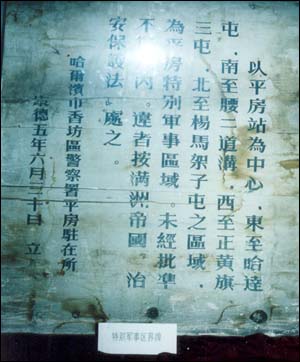 以平房站為中心.東至哈達
屯.南至腰二道溝.西至正黃旗
三屯.北至楊馬架子屯之區域.
為平房特別軍事區域.未經批準
不內.違者按满洲帝國.治
安保法.處之.
哈爾濱市香坊區警察署平房駐在所
德五年六月十日 立
特别军事区界牌